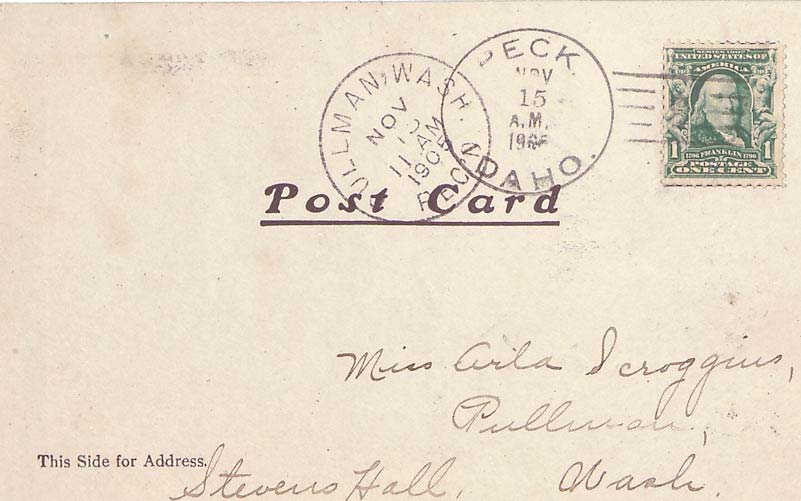 PECK
NOV
15
A.M.
IDAHO.
ULLMAN, WASH.
NOV
11 AM
1905
REC'D.
SERIES 1902
UNITED STATES OF
AMERICA
1706 FRANKLIN 1790
1 1
POSTAGE
ONE CENT
Post Card
Miss Arla Scroggins,
Pullman,
This Side for Address.
Stevens Hall, Wash.